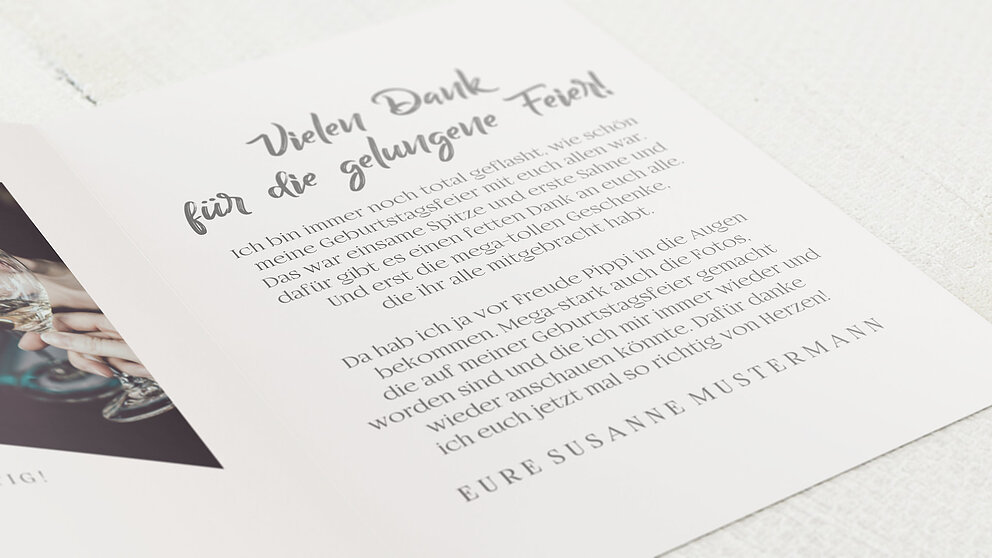 Vielen Dank
für die gelungene Feier!
Ich bin immer noch total geflasht, wie schön
meine Geburtstagsfeier mit euch allen war.
Das war einsame Spitze und erste Sahne und
dafür gibt es einen fetten Dank an euch alle.
Und erst die mega-tollen Geschenke,
die ihr alle mitgebracht habt.
Da hab ich ja vor Freude Pippi in die Augen
bekommen. Mega-stark auch die Fotos,
die auf meiner Geburtstagsfeier gemacht
worden sind und die ich mir immer wieder und
wieder anschauen könnte. Dafür danke
ich euch jetzt mal so richtig von Herzen!
EURE SUSANNE MUSTERMANN